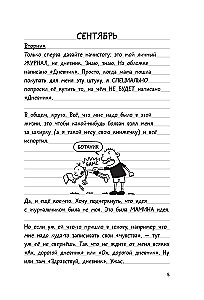 СЕНТЯБРЬ
Вторник
Только сперва давайте начистоту: это мой личный
ЖУРНАЛ, не дневник. Знаю, знаю. На обложке
написано «Дневник». Просто, когда мама пошла
покупать для меня эту штуку, я СПЕЦИАЛЬНО
попросил её купить то, на чём НЕ БУДЕТ написано
«Дневник».
В общем, круто. Всё, что мне надо было в этой
жизни, это чтобы какой-нибудь балбес взял меня
за шкирку (а я такой несу свою книжечку) и всё
испортил.
БОТАНИК
БАМС
Да, и ещё кое-что. Хочу подчеркнуть, что идея
с журнальчиком была не моя. Это была МАМИНА идея.
Но если уж ей что-то пришло в голову, например что
мне надо куда-то записывать свои «чувства», – тут
уж её не свернёшь. Так что не ждите от меня всяких
«Ах, дорогой дневник» или «Ох, дорогой дневник». Ну
или там «Здравствуй, дневник». Ужас.